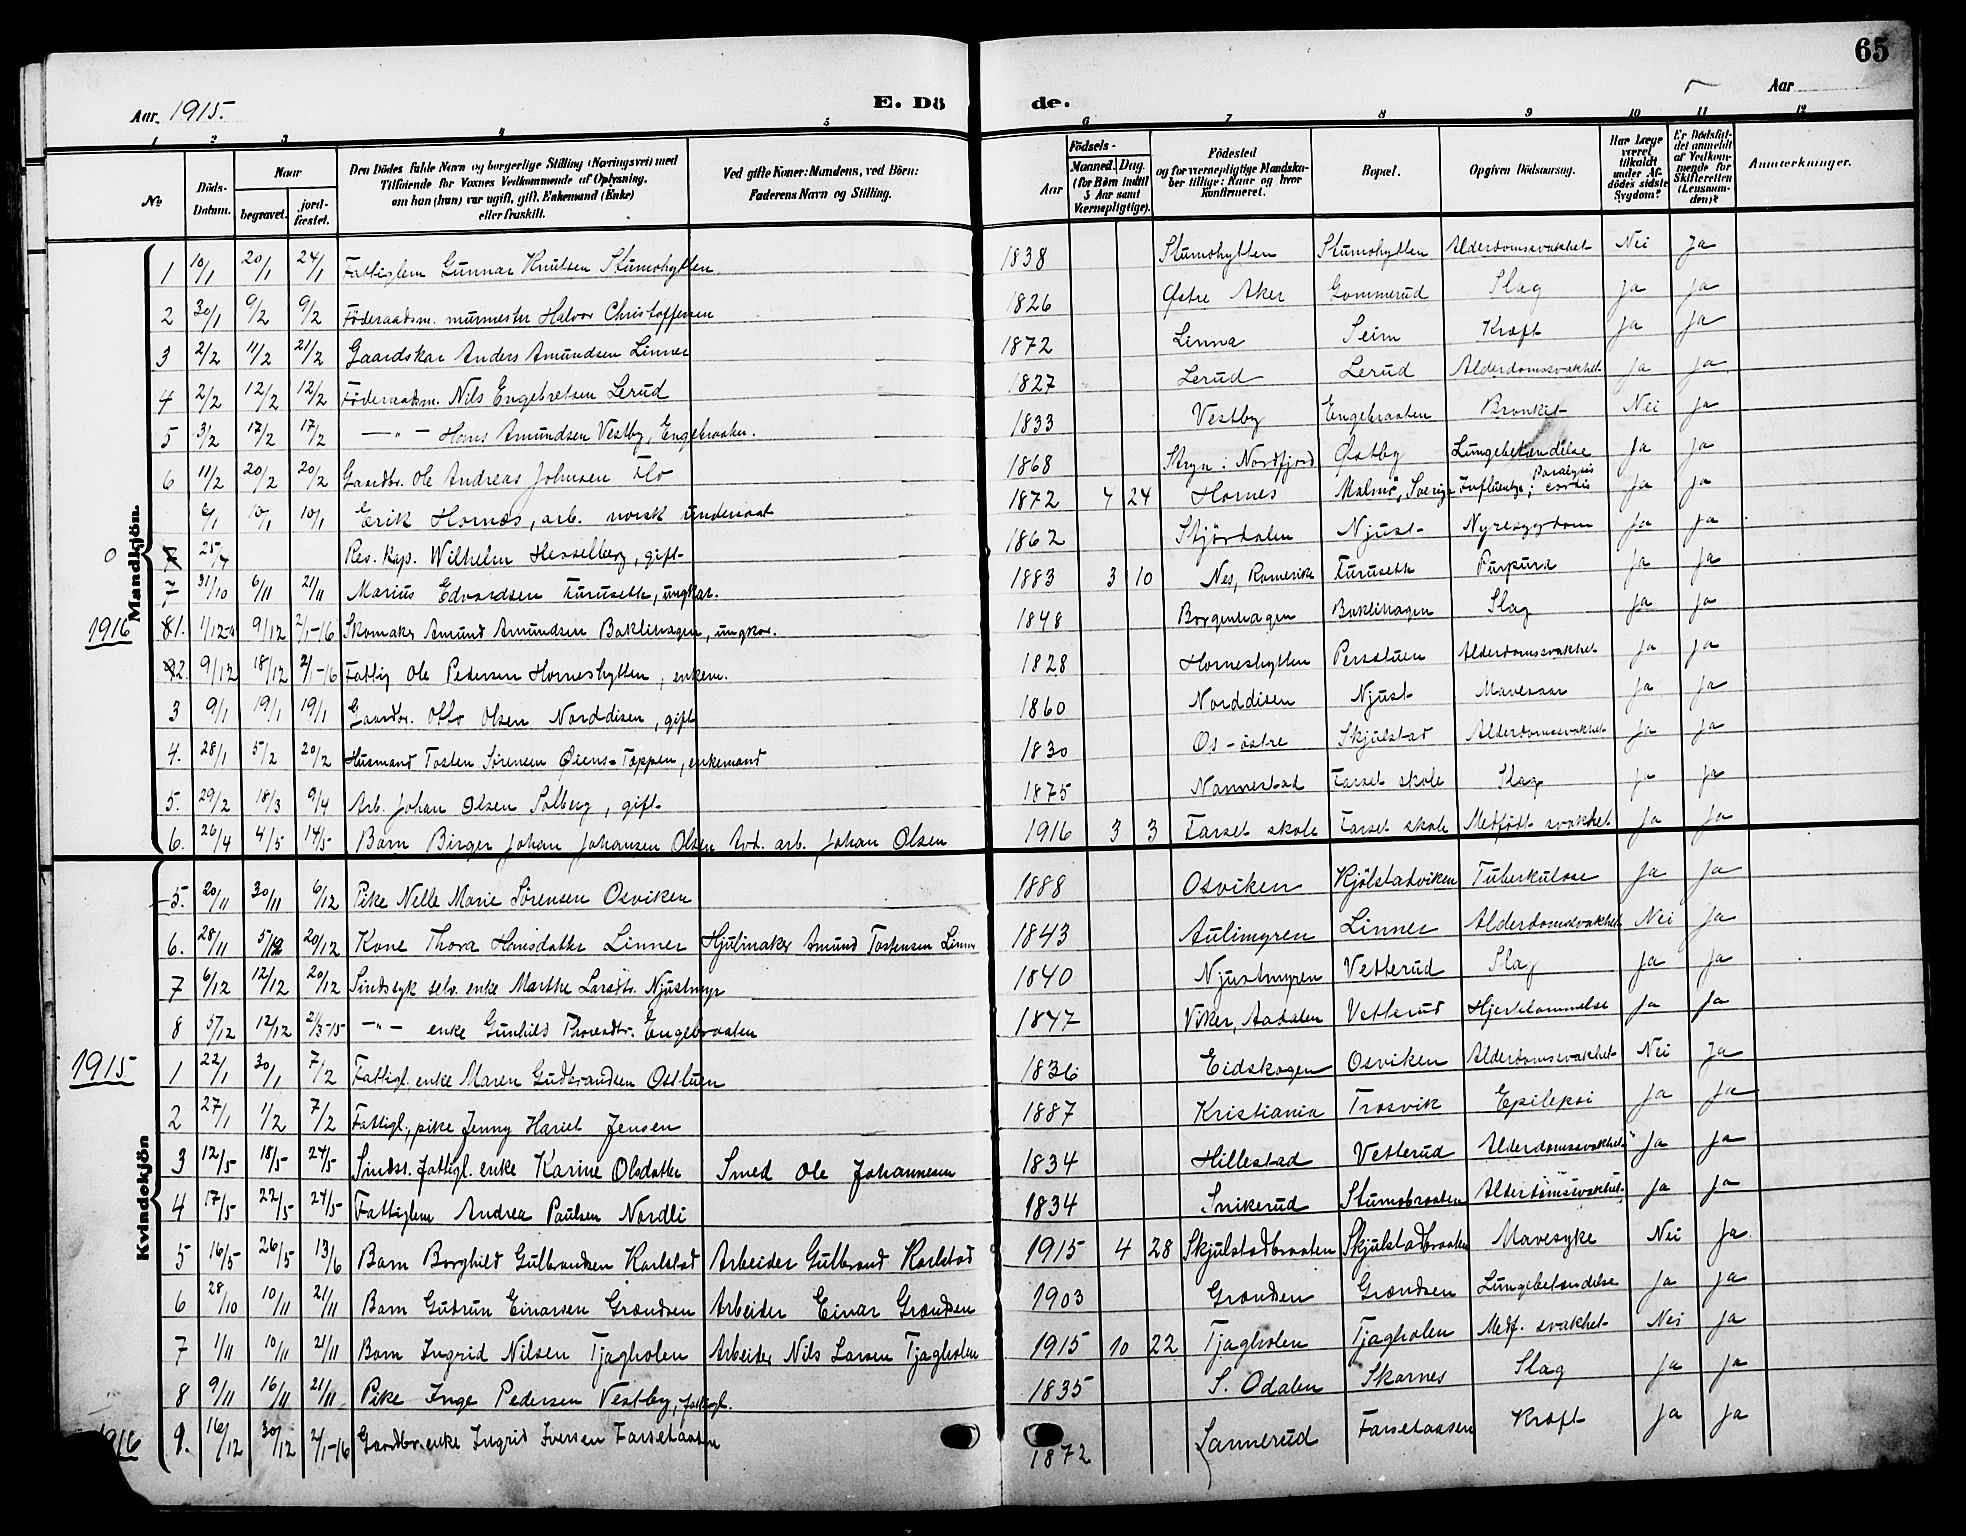 65
Aar. 1915.
E. Dö
de.
Aar
1 2 3 4 5 6 7 8 9 10 11 12
No
Döds-Datum.
Naar
begravet.
jord-fæstet.
Den Dödes fulde Navn og borgerlige Stilling (Næringsvei) med
Tilföiende for Voxnes Vedkommende af Oplysning,
om han (hun) var ugift, gift, Enkemand (Enke)
eller fraskilt.
Ved gifte Koner: Mandens, ved Börn:
Faderens Navn og Stilling.
Aar
Födsels-
Maaned. Dag.
(for Børn indtil
5 Aar samt
Værnepligtige).
Födested
og for værnepligtige Mandska-
ber tillige: Naar og hvor
konfirmeret.
Bopæl.
Opgiven Dödsaarsag.
Har Læge
været
tilkaldt
under Af-
dödes sidste
Sygdom?
Er Dödsfal-
det anmeldt
af Vedkom-
mende for
Skifteretten
(Lensman-
den)?
Anmærkninger.
Mandkjön.
1 10/1 20/1 24/1 Fattiglem Gunnar Knutsen Stumohytten 1838 Stumohytten Stumohytten Alderdomssvakhet Nei Ja
2 30/1 9/2 9/2 Föderaadsm. murmester Halvor Christoffersen 1826 Østre Aker Gommerud Slag Ja Ja
3 2/2 11/2 21/2 Gaardskar Anders Amundsen Linner 1872 Linna Seim Kræft Ja Ja
4 2/2 12/2 12/2 Föderaadsm. Nils Engebretsen Lerud 1827 Lerud Lerud Alderdomssvakhet Ja Ja
5 3/2 17/2 17/2 — " — Hans Amundsen Vestby, Engebraaten. 1833 Vestby Engebraaten Bronkit Nei Ja
6 11/2 20/2 20/2 Gaardbr. Ole Andreas Johnsen Flo 1868 Stryn i Nordfjord Østby Lungebetændelse Ja Ja
6/1 10/1 10/1 Erik Hornæs, arb. norsk undersaat 1872 7 24 Hornes Malmö, Sverige Influentse, Paralysis cordis Ja Ja
25/4 Res. kap. Wilhelm Hesselberg, gift 1862 Stjørdalen Njust Nyresygdom Ja Ja
7 31/10 6/11 21/11 Marius Edvardsen Furuseth, ungkar. 1883 3 10 Nes, Romerike Furuseth Purpura Ja Ja
1916
81. 1/12 9/12 2/1-16 Skomaker Amund Amundsen Baklihagen, ungkar. 1848 Borgenhagen Baklihagen Slag Ja Ja
2. 9/12 18/12 2/1-16 Fattig Ole Pedersen Horneshytten, enkem. 1828 Horneshytten Perstuen Alderdomssvakhet Ja Ja
3 9/1 19/1 19/1 Gaardbr. Otto Olsen Norddisen, gift 1860 Norddisen Njust Mavesaar Ja Ja
4. 28/1 5/2 20/2 Husmand Tosten Sørensen Øiens-Tæppen, enkemand 1830 Os-østre Skjulstad Alderdomssvakhet Ja Ja
5. 29/2 18/3 9/4 Arb. Johan Olsen Solberg, gift 1875 Nannestad Farset skole Slag Ja Ja
6. 26/4 4/5 14/5 Barn Birger Johan Johansen Olsen Avd. arb. Johan Olsen 1916 3 3 Farset skole Farset skole Medfødt svakhet Ja Ja
Kvindekjön
5. 20/11 30/11 6/12 Pike Nelle Marie Sørensen Osviken 1888 Osviken Kjölstadviken Tuberkulose Ja Ja
6. 28/11 5/12 20/12 Kone Thora Hansdatter Linner Hjulmaker Amund Tostensen Linner 1843 Aulimyren Linner Alderdomssvakhet Nei Ja
7 6/12 12/12 20/12 Sindssyk selv. enke Marthe Larsdtr. Njustmyr 1840 Njustmyren Vetterud Slag Ja Ja
8 5/12 12/12 2/3-15 — " — enke Gunhild Thoresdtr. Engebraaten 1847 Viker, Aadalen Vetterud Hjertelammelse Ja Ja
1915
1 22/1 30/1 7/2 Fattigl. enke Maren Gudbrandsen Osstuen 1836 Eidskogen Osviken Alderdomssvakhet Nei Ja
2 27/1 1/2 7/2 Fattigl., pike Jenny Hariet Jensen 1887 Kristiania Trosvik Epilepsi Ja Ja
3 12/5 18/5 24/5 Sindss. fattigl. enke Karine Olsdatter Smed Ole Johannesen 1834 Hillestad Vetterud Alderdomssvakhet Ja Ja
4 17/5 22/5 24/5 Fattiglem Andrea Paulsen Nordli 1834 Snikerud Stumobraaten Alderdomssvakhet Ja Ja
5 16/5 26/5 13/6 Barn Borghild Gulbrandsen Karlstad Arbeider Gulbrand Karlstad 1915 4 28 Skjulstadbraaten Skjulstadbraaten Mavesyke Nei Ja
6 28/10 10/11 21/11 Barn Gudrun Einarsen Grændsen Arbeider Einar Grændsen 1903 Grændsen Grændsen Lungebetændelse Ja Ja
7 1/11 10/11 21/11 Barn Ingrid Nilsen Tjagholen Arbeider Nils Larsen Tjagholen 1915 10 22 Tjagholen Tjagholen Medf. svakhet Nei Ja
8 9/11 16/11 21/11 Pike Inge Pedersen Vestby, fattigl. 1835 S. Odalen Skarnes Slag Ja Ja
1916
9. 16/12 30/12 2/1-16 Gaardbr.enke Ingrid Iversen Farsetaasen 1872 Sannerud Farsetaasen Kræft Ja Ja